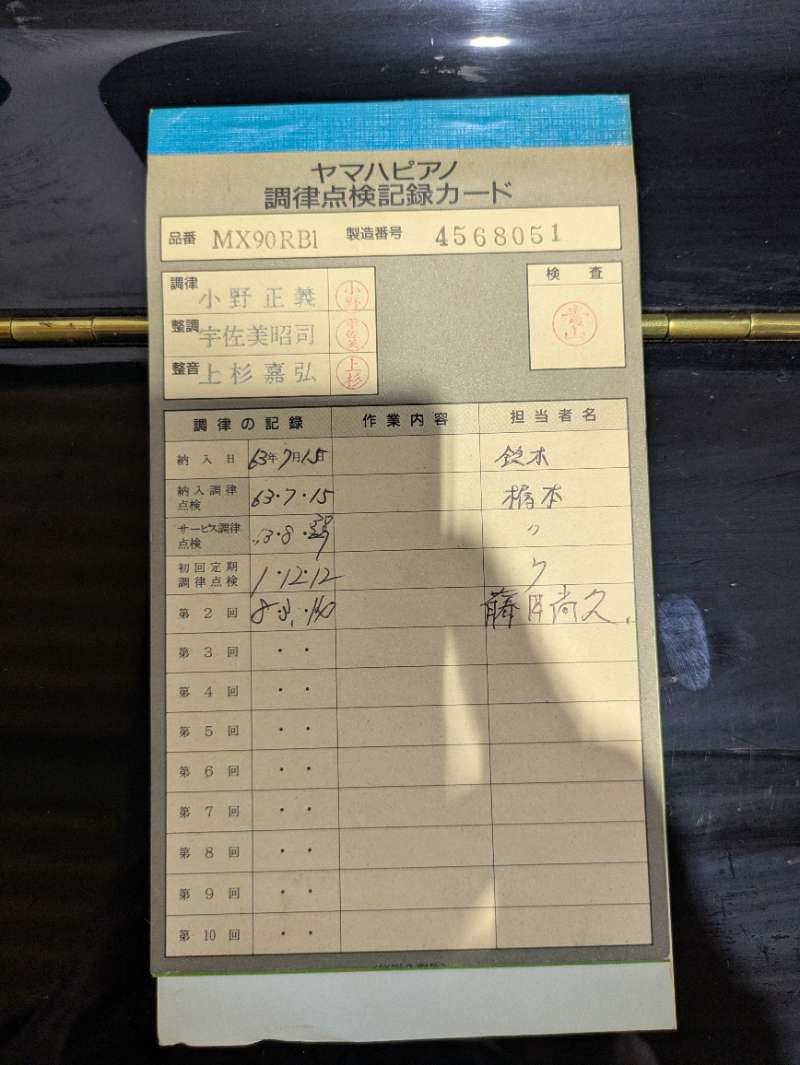 ヤマハピアノ
調律点検記録カード
品番 MX90RBl 製造番号 4568051
調律 小野正義 小野
検査
整調 宇佐美昭司 宇佐美
整音 上杉嘉弘 上杉
調律の記録 作業内容 担当者名
納入日 63年7月15日 鈴木
納入調律点検 63・7・15 梅本
サービス調律点検 ・8・ 〃
初回定期調律点検 1・12・12 〃
第2回 尚久
第3回 ・ ・
第4回 ・ ・
第5回 ・ ・
第6回 ・ ・
第7回 ・ ・
第8回 ・ ・
第9回 ・ ・
第10回 ・ ・